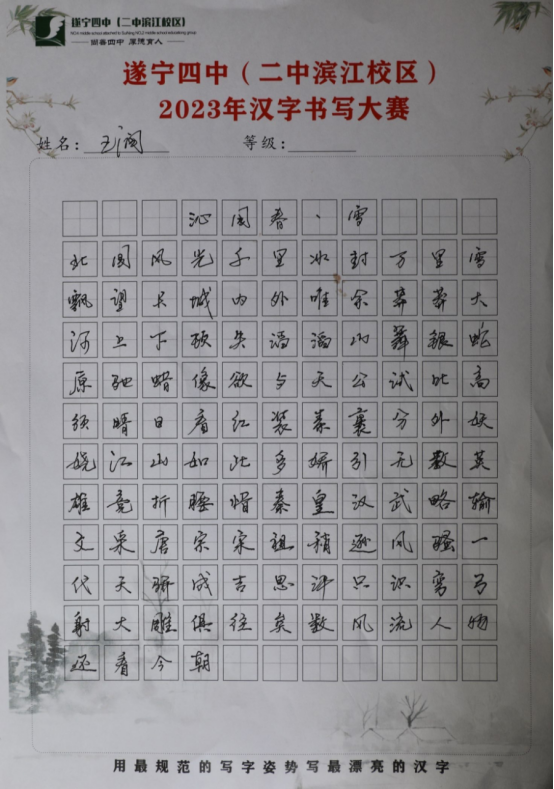 遂宁四中（二中滨江校区）
尚善四中 厚德育人
遂宁四中（二中滨江校区）
2023年汉字书写大赛
姓名：
等级：
沁园春、雪
北国风光千里冰封万里雪
飘望长城内外唯余莽莽大
河上下顿失滔滔山舞银蛇
原驰蜡像欲与天公试比高
须晴日看红装素裹分外妖
娆江山如此多娇引无数英
雄竞折腰惜秦皇汉武略输
文采唐宗宋祖稍逊风骚一
代天骄成吉思汗只识弯弓
射大雕俱往矣数风流人物
还看今朝
用最规范的写字姿势写最漂亮的汉字